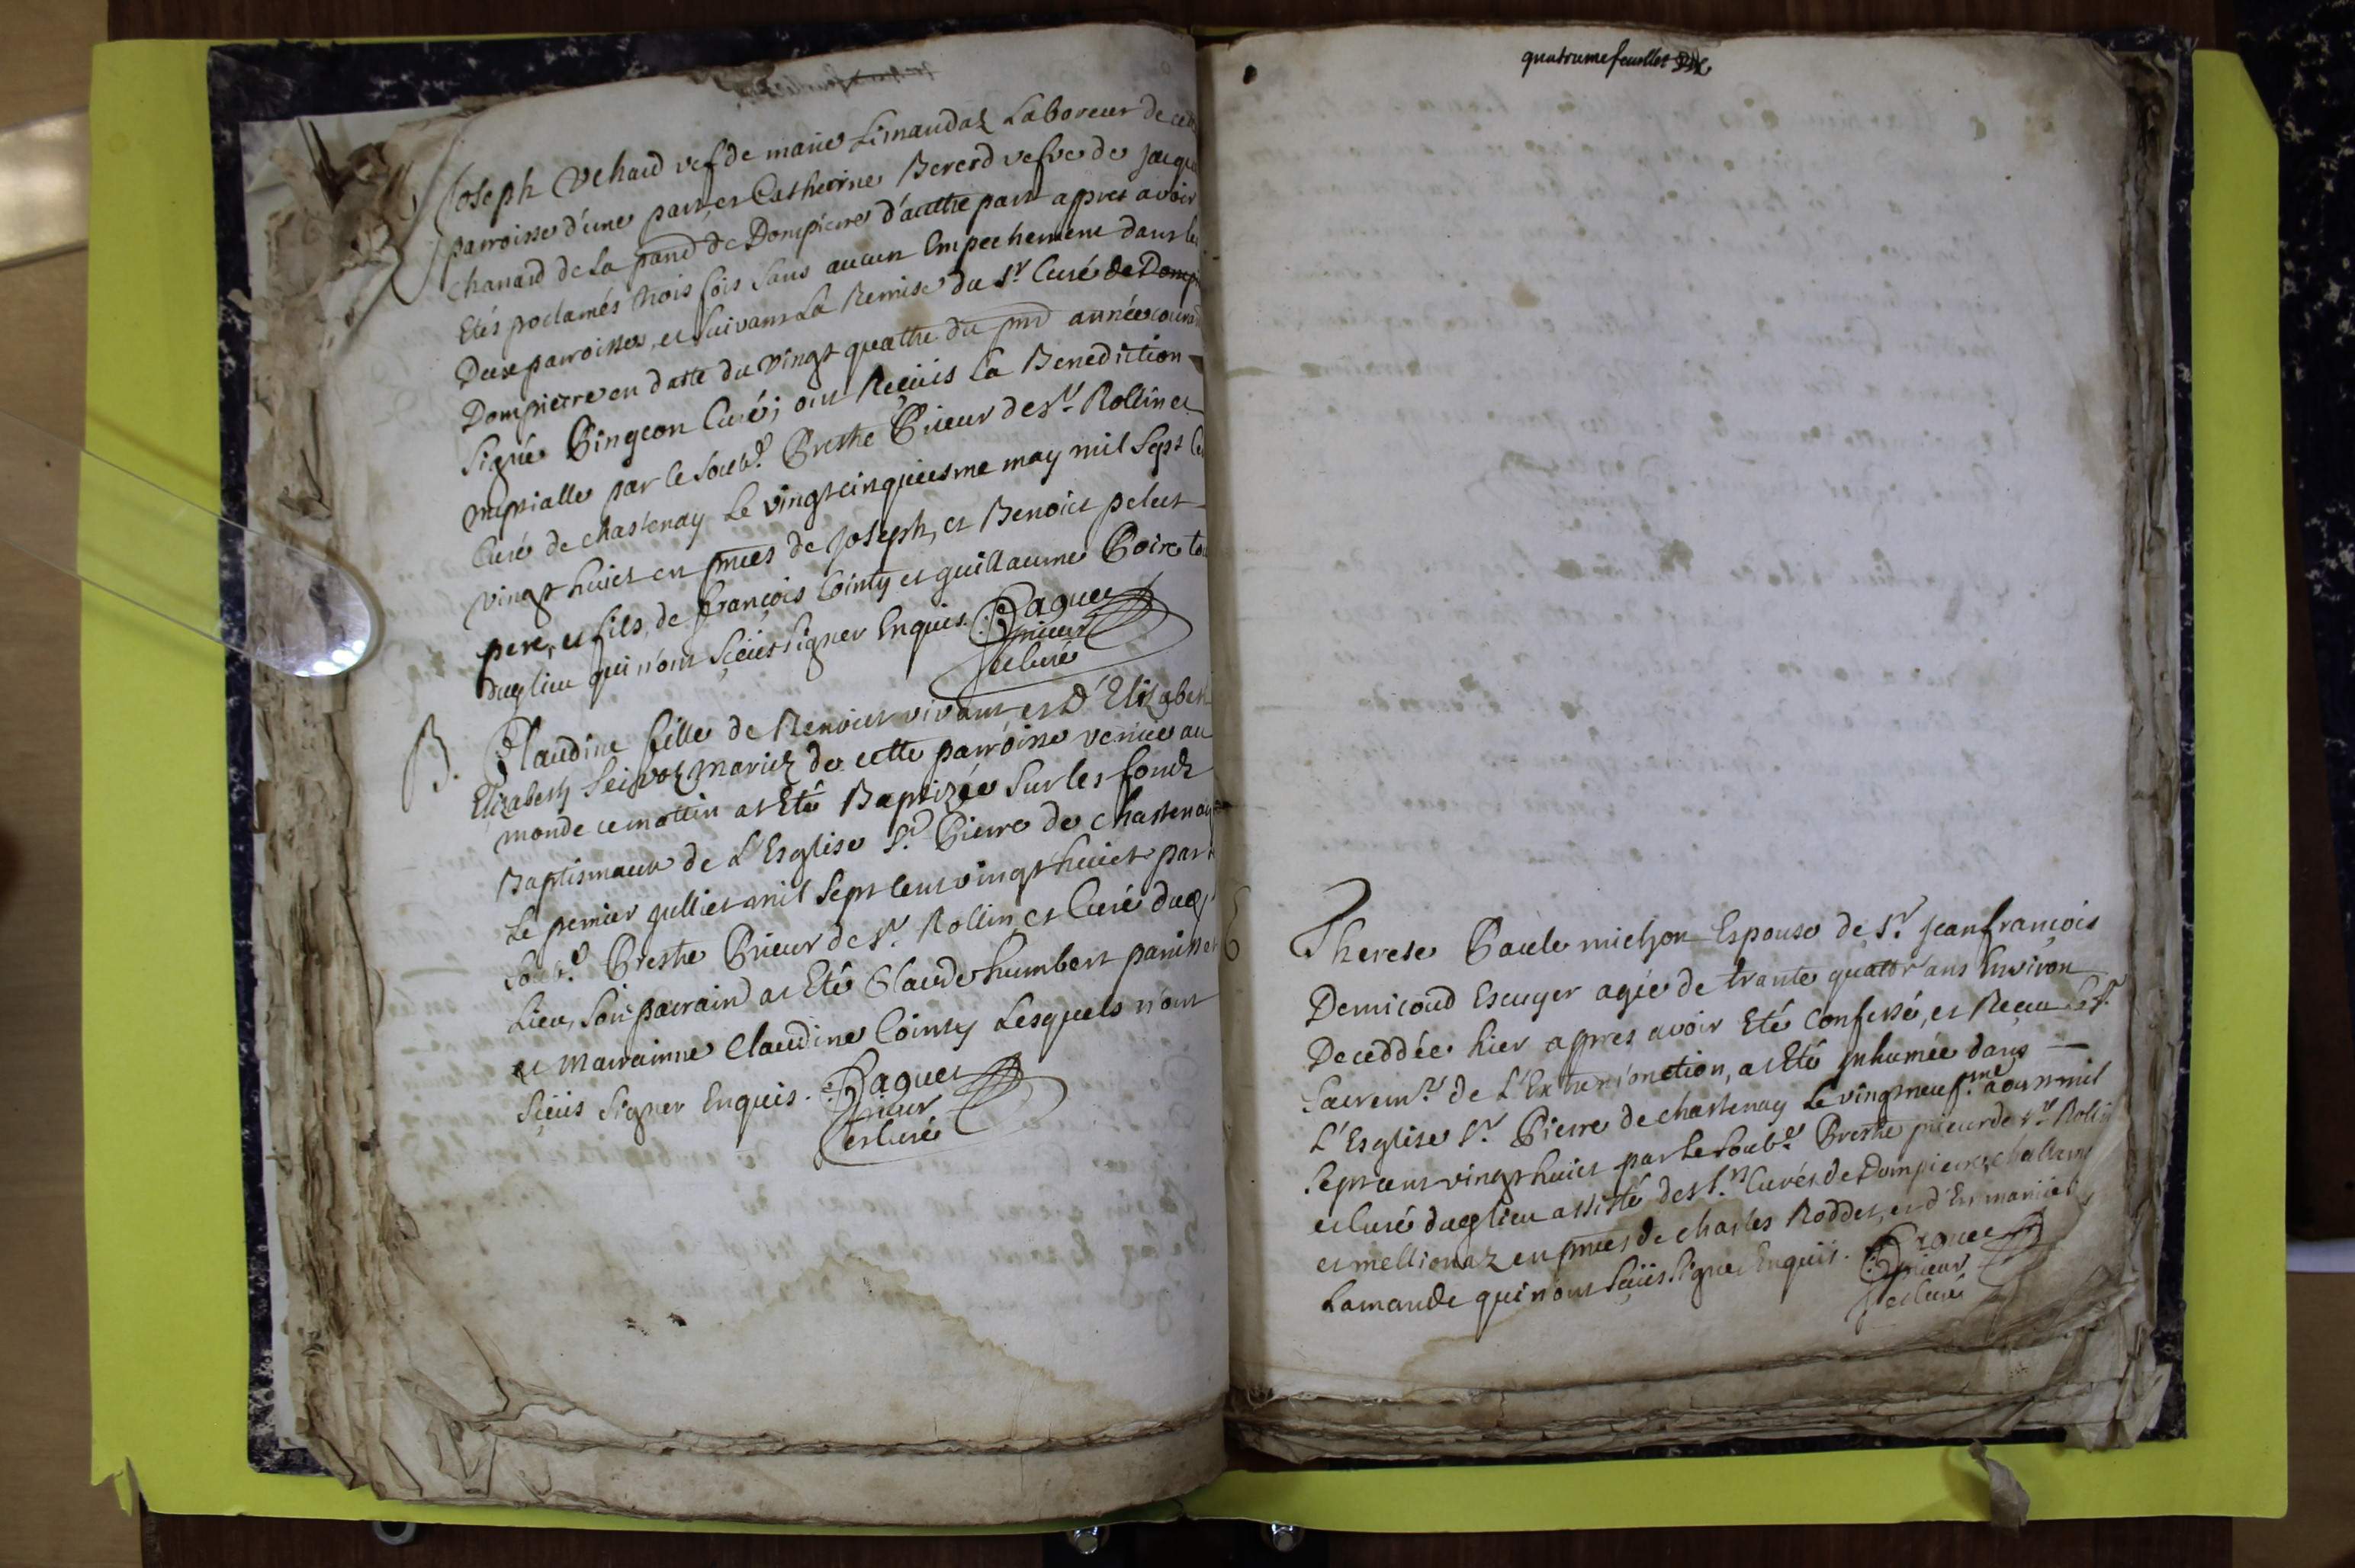 Joseph Vehard vef de marie Limandaz Laboreur de cette
parroisse d'une part, et Catherine Bererd vefve de Jacque
chanard de La parrd de Dompierre d'autre part appres avoir
Etés proclamés trois fois sans aucun Empechement dans les
Deux parroisses, et suivant La Remise du Sr Curé de Domp
Dompierre en datte du vingt quattre du pnt année courant
signée Pingeon Curé; ont Reçeüs La Benediction
nuptialle par le soubd. Prestre Prieur de st. Rollin et
Curé de chastenay Le vingt cinquiesme may mil sept Ce
vingt huict en pnces de Joseph, et Benoict pelut
pere, et fils, de françois Cointy et guillaume Poire
duq lieu qui n'ont sçeüs signer Enquis. Paquet
prieur
et Curé
B. Claudine fille de Benoict vivant et D'Elizabeth
Elizabeth Seivoz mariez de cette parroisse venüe au
monde ce mattin at Eté Baptizée sur les fondz
Baptismaux de L'Esglise St. Pierre de chastenay
Le premier jullict mil sept Cent vingt huict par
soubd. Prestre Prieur de st. Rollin et Curé duq
Lieu, son parrain at Eté Claude humbert parisset
et marrainne Claudine Cointy Lesquels n'ont
sçeüs signer Enquis. Paquet
prieur
et Curé
quatrieme feuillet
Therese Paule michon Espouse de Sr. jean françois
Demicoud Escuyer agée de trante quattr ans Environ
Deceddée hier appres avoir Eté Confessé, et Reçeu Le St.
Sacremt. de L'Extremonction, at Eté inhumée dans
L'Esglise St. Pierre de chastenay Le vingt neufme. aoust mil
sept cent vingt huict par Le soubd. Prestre prieur de st. Rolin
et Curé duq lieu assisté des Srs. Curés de Dompierre, challam
et mellionaz en pnces de charles Roddet, et d'
Lamande qui n'ont sçeüs signer Enquis. Paquet
prieur
et Curé